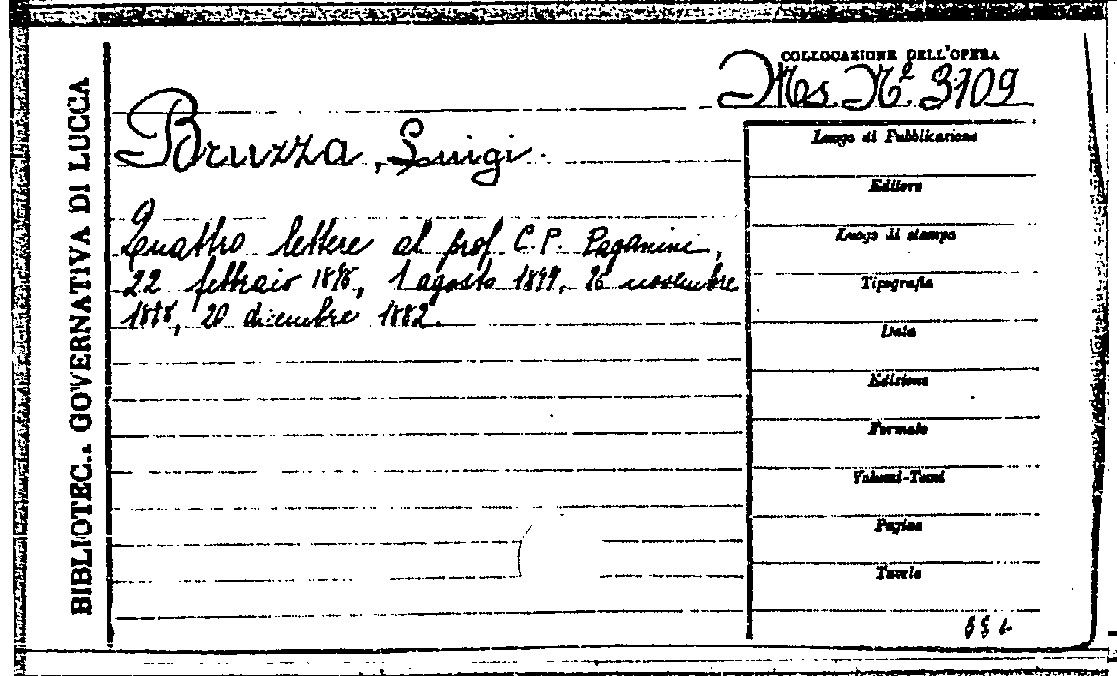 BIBLIOTEC.. GOVERNATIVA DI LUCCA
COLLOCAZIONE DELL'OPERA
Ms. Nº 3109
Bruzza, Luigi.
Quattro lettere al prof. C. P. Paganini,
22 febbraio 1878, 1 agosto 1877, 26 novembre
1878, 20 dicembre 1882.
Luogo di Pubblicazione
Editore
Luogo di stampa
Tipografia
Data
Edizione
Formato
Volumi-Tomi
Pagine
Tavole